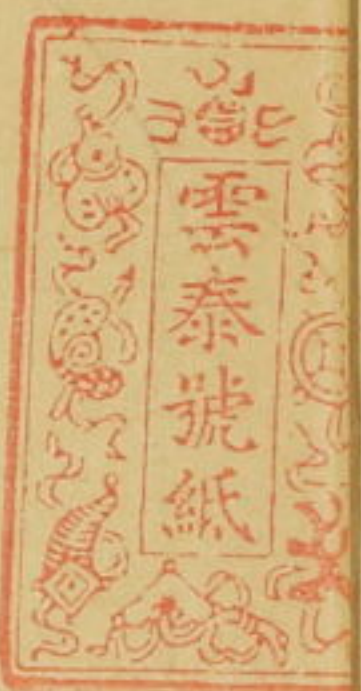 雲泰號紙